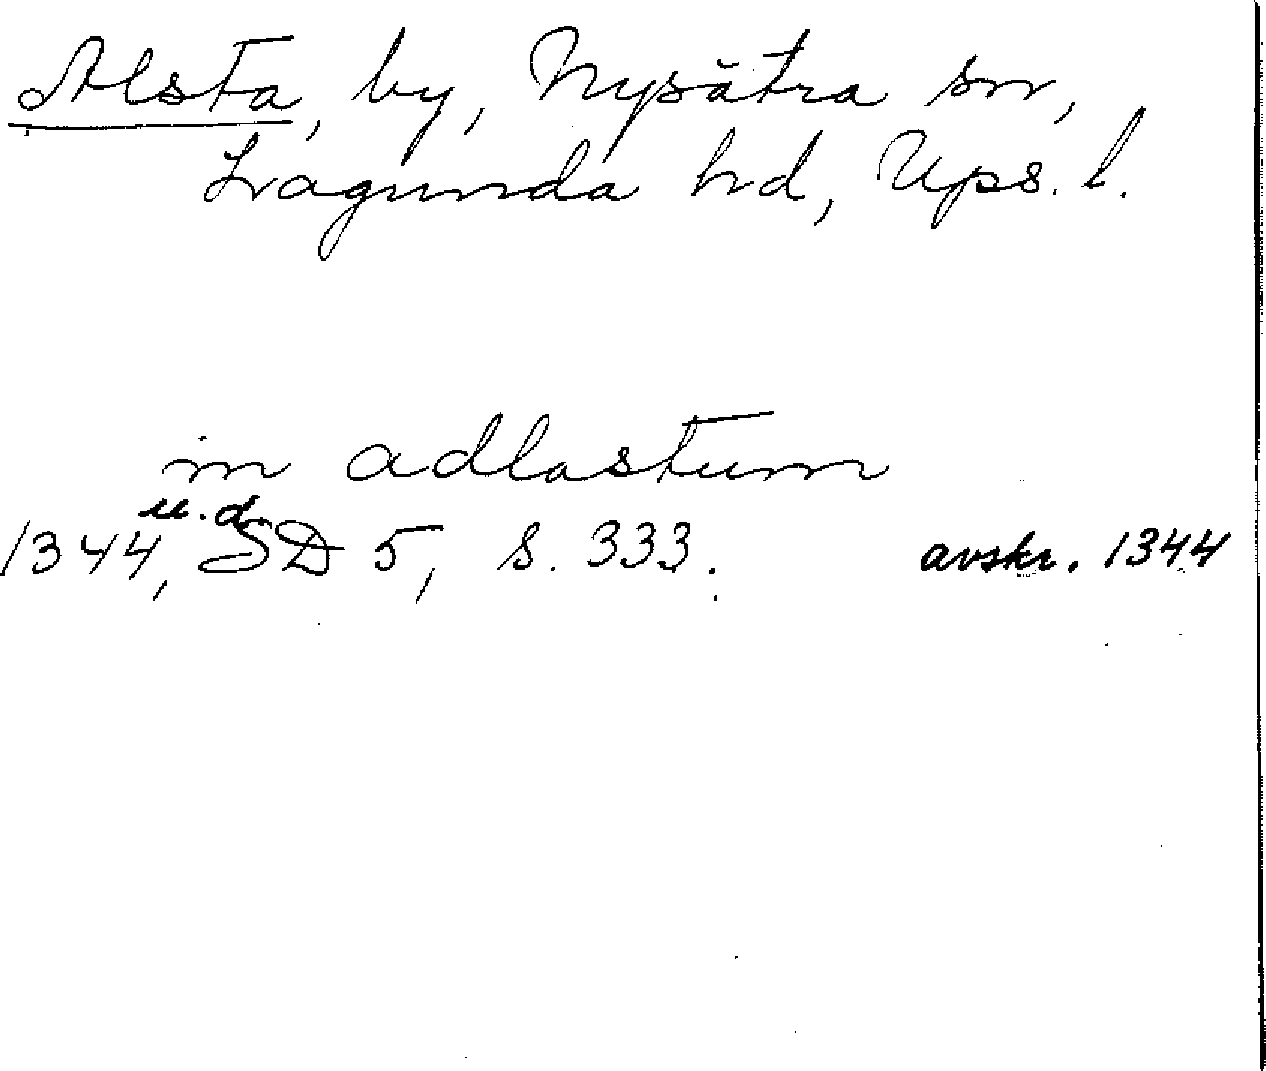 Alsta, by, Nysätra sn,
Lagunda hd, Ups. l.
in adlastum
u.d
1344, SD 5, s. 333. avskr. 1344